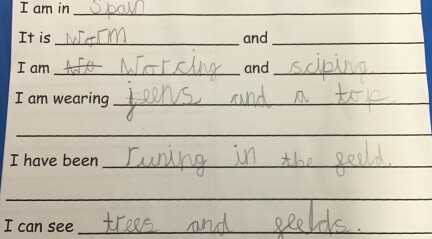 I am in Spain
It is worm and
I am wo worcing and sciping.
I am wearing jeens and a top.
I have been runing in the feeld.
I can see trees and feelds.